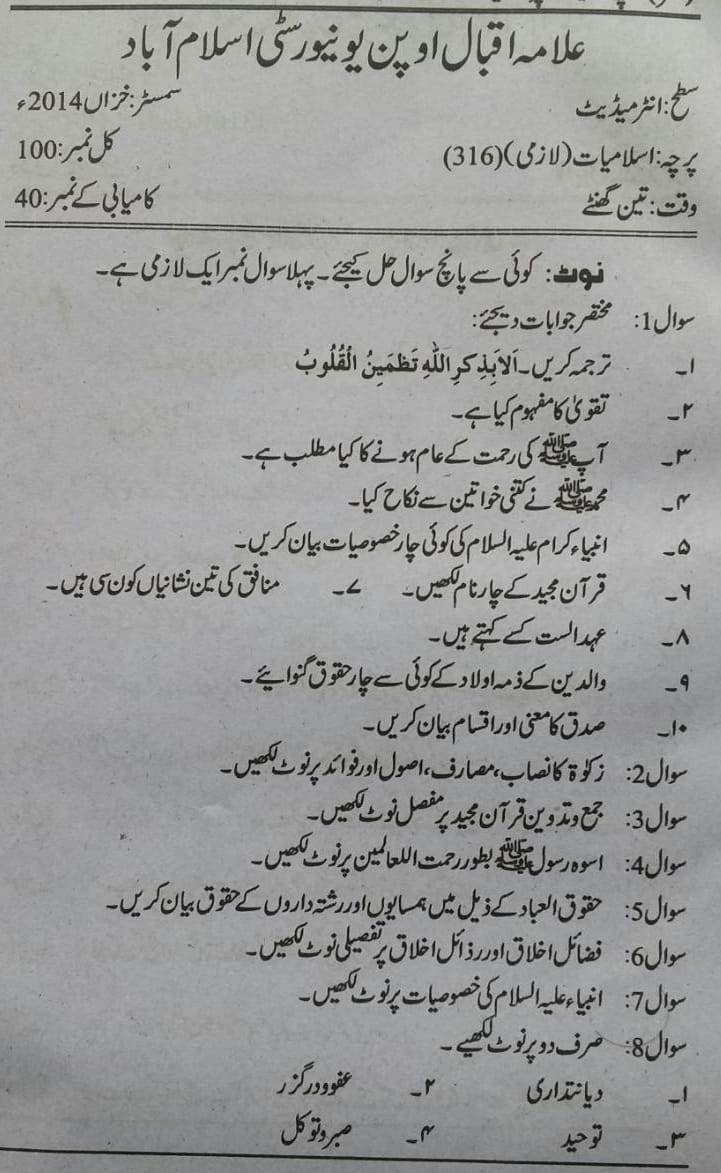 علامہ اقبال اوپن یونیورسٹی اسلام آباد
سطح: انٹرمیڈیٹ سمسٹر: خزاں 2014ء
پرچہ: اسلامیات (لازمی) (316) کل نمبر: 100
وقت: تین گھنٹے کامیابی کے نمبر: 40
نوٹ: کوئی سے پانچ سوال حل کیجئے۔ پہلا سوال نمبر ایک لازمی ہے۔
سوال 1: مختصر جوابات دیجئے:
۱۔ ترجمہ کریں۔ اَلَا بِذِکرِ اللّٰہِ تَطْمَئِنُّ الْقُلُوبُ
۲۔ تقویٰ کا مفہوم کیا ہے۔
۳۔ آپ ﷺ کی رحمت کے عام ہونے کا کیا مطلب ہے۔
۴۔ محمد ﷺ نے کتنی خواتین سے نکاح کیا۔
۵۔ انبیاء کرام علیہ السلام کی کوئی چار خصوصیات بیان کریں۔
۶۔ قرآن مجید کے چار نام لکھیں۔ ۷۔ منافق کی تین نشانیاں کون سی ہیں۔
۸۔ عہد الست کسے کہتے ہیں۔
۹۔ والدین کے ذمہ اولاد کے کوئی سے چار حقوق گنوائیے۔
۱۰۔ صدق کا معنی اور اقسام بیان کریں۔
سوال 2: زکوٰۃ کا نصاب، مصارف، اصول اور فوائد پر نوٹ لکھیں۔
سوال 3: جمع و تدوین قرآن مجید پر مفصل نوٹ لکھیں۔
سوال 4: اسوہ رسول ﷺ بطور رحمت اللعالمین پر نوٹ لکھیں۔
سوال 5: حقوق العباد کے ذیل میں ہمسایوں اور رشتہ داروں کے حقوق بیان کریں۔
سوال 6: فضائل اخلاق اور رذائل اخلاق پر تفصیلی نوٹ لکھیں۔
سوال 7: انبیاء علیہ السلام کی خصوصیات پر نوٹ لکھیں۔
سوال 8: صرف دو پر نوٹ لکھیے۔
۱۔ دیانتداری ۲۔ عفو و درگزر
۳۔ توحید ۴۔ صبر و توکل